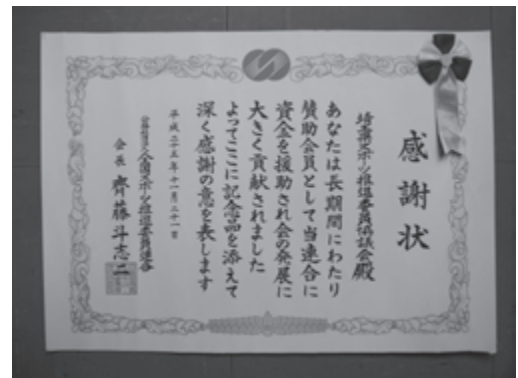 感謝状
埼玉県スポーツ推進委員協議会殿
あなたは長期間にわたり
賛助会員として当連合に
資金を援助され会の発展に
大きく貢献されました
よってここに記念品を添えて
深く感謝の意を表します
平成二十五年十一月二十一日
公益社団法人全国スポーツ推進委員連合
会長 齊藤斗志二